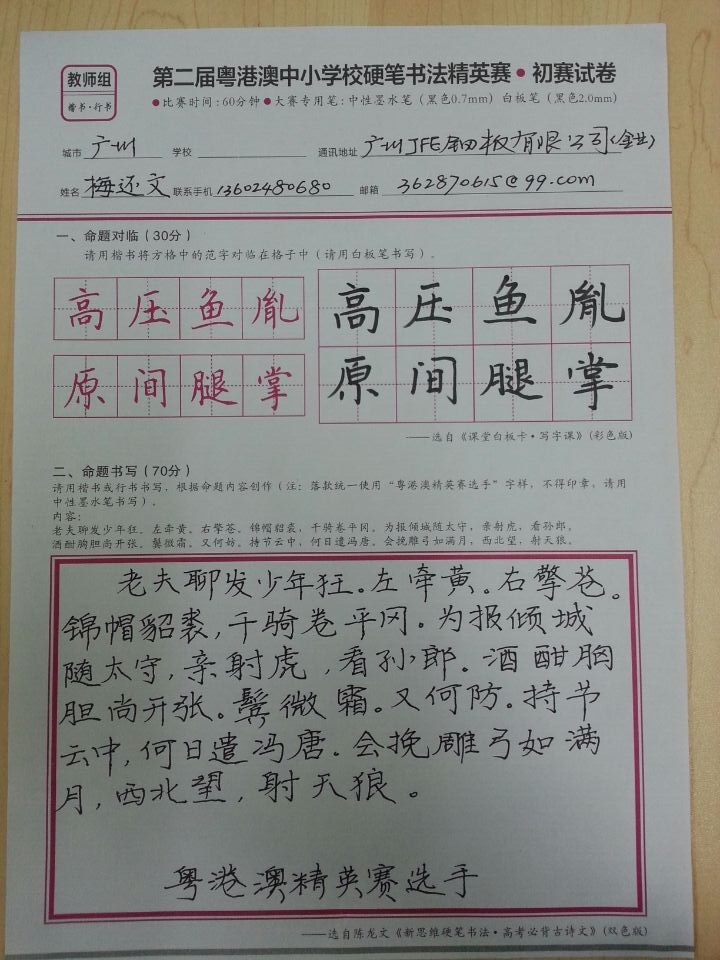 教师组
楷书·行书
第二届粤港澳中小学校硬笔书法精英赛·初赛试卷
●比赛时间:60分钟●大赛专用笔:中性墨水笔(黑色0.7mm) 白板笔(黑色2.0mm)
城市 广州 学校 通讯地址 广州JFE钢板有限公司(企业)
姓名 梅还文 联系手机 13602480680 邮箱 362870615@99.com
一、命题对临(30分)
请用楷书将方格中的范字对临在格子中(请用白板笔书写)。
高压鱼胤 高压鱼胤
原间腿掌 原间腿掌
——选自《课堂白板卡·写字课》(彩色版)
二、命题书写(70分)
请用楷书或行书书写,根据命题内容创作(注:落款统一使用“粤港澳精英赛选手”字样,不得印章,请用
中性墨水笔书写)。
内容:
老夫聊发少年狂。左牵黄。右擎苍。锦帽貂裘,千骑卷平冈。为报倾城随太守,亲射虎,看孙郎。
酒酣胸胆尚开张。鬓微霜。又何妨。持节云中,何日遣冯唐。会挽雕弓如满月,西北望,射天狼。
老夫聊发少年狂。左牵黄。右擎苍。
锦帽貂裘,千骑卷平冈。为报倾城
随太守,亲射虎,看孙郎。酒酣胸
胆尚开张。鬓微霜。又何防。持节
云中,何日遣冯唐。会挽雕弓如满
月,西北望,射天狼。
粤港澳精英赛选手
——选自陈龙文《新思维硬笔书法·高考必背古诗文》(双色版)